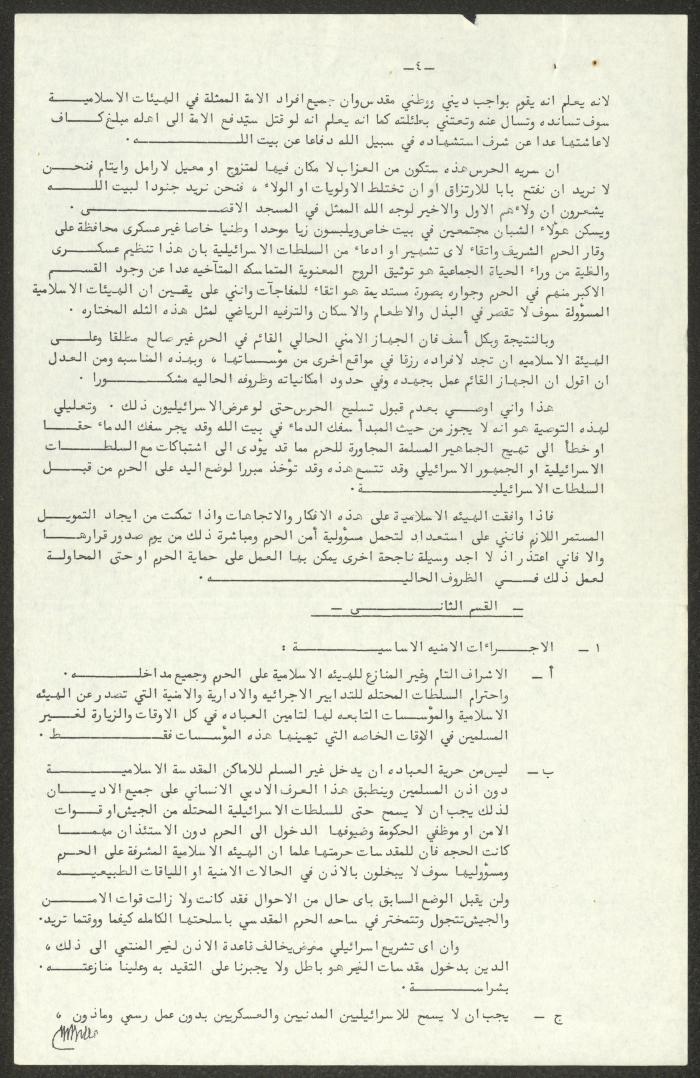 -٤-
لانه يعلم انه يقوم بواجب ديني ووطني مقدس وان جميع افراد الامة الممثلة في الهيئات الاسلاميـــة
سوف تسانده وتسال عنه وتعتني بعائلته كما انه يعلم انه لو قتل ستدفع الامة الى اهله مبلغ كـــاف
لاعاشتها عدا عن شرف استشهاده في سبيل الله دفاعا عن بيت اللـــــــه .
ان سريه الحرس هذه ستكون من العزاب لا مكان فيها لمتزوج او معيل لارامل وايتام فنحـــن
لا نريد ان نفتح بابا للارتزاق او ان تختلط الاولويات او الولاء ، فنحن نريد جنودا لبيت اللـــه
يشعرون ان ولاءهم الاول والاخير لوجه الله الممثل في المسجد الاقصـــــــى .
ويسكن هؤلاء الشبان مجتمعين في بيت خاص ويلبسون زيا موحدا وطنيا خاصا غير عسكرى محافظة على
وقار الحرم الشريف واتقاء لاى تشهير او ادعاء من السلطات الاسرائيلية بان هذا تنظيم عسكـــرى
والغاية من وراء الحياة الجماعية هو توثيق الروح المعنوية المتماسكه المتآخيه عدا عن وجود القســـم
الاكبر منهم في الحرم وجواره بصورة مستديمة هو اتقاء للمفاجآت وانني على يقـين ان الهيئات الاسلامية
المسؤولة سوف لا تقصر في البذل والاطعام والاسكان والترفيه الرياضي لمثل هذه الثله المختاره .
وبالنتيجة وبكل أسف فان الجهاز الامني الحالي القائم في الحرم غير صالح مطلقا وعلـــى
الهيئة الاسلاميه ان تجد لافراده رزقا في مواقع اخرى من مؤسساتها ، وبهذه المناسبه ومن العدل
ان اقول ان الجهاز القائم عمل بجهده وفي حدود امكانياته وظروفه الحاليه مشكـــــورا .
هذا واني اوصـــي بعدم قبول تسليح الحرس حتى لو عرض الاسرائيليون ذلك . وتعليلي
لهذه التوصية هو انه لا يجوز من حيث المبدأ سفك الدماء في بيت الله وقد يجر سفك الدماء حقـــا
او خطأ الى تهيج الجماهير المسلمة المجاورة للحرم مما قد يؤدى الى اشتباكات مع السلطـــات
الاسرائيلية او الجمهور الاسرائيلي وقد تتسع هذه وقد تؤخذ مبررا لوضع اليد على الحرم من قبـــل
السلطات الاسرائيليـــــــة .
فاذا وافقت الهيئه الاسلامية على هذه الافكار والاتجاهات واذا تمكنت من ايجاد التمويـــل
المستمر اللازم فانني على استعداد لتحمل مسؤولية أمن الحرم ومباشرة ذلك من يوم صدور قرارهـــا
والا فاني اعتذر اذ لا اجد وسيلة ناجحة اخرى يمكن بها العمل على حماية الحرم او حتى المحاولـــة
لعمل ذلك فـــي الظروف الحاليـــــــه .
- القسم الثانـــــى -
١ - الاجـــراءات الامنيه الاساسيـــــة :
أ - الاشراف التام وغير المنازع للهيئه الاسلامية على الحرم وجميع مداخلـــــه .
واحترام السلطات المحتله للتدابير الاجرائيه والادارية والامنية التي تصدر عن الهيئه
الاسلامية والمؤسسات التابعه لها لتامين العباده في كل الاوقات والزيارة لغـــير
المسلمين في الاوقات الخاصه التي تعينها هذه المؤسسات فقـــط .
ب - ليس من حرية العباده ان يدخل غير المسلم للاماكن المقدسة الاسلاميـــــة
دون اذن المسلمين وينطبق هذا العرف الادبي الانساني على جميع الاديـــان
لذلك يجب ان لا يسمح حتى للسلطات الاسرائيلية المحتله من الجيش او قـــوات
الامن او موظفي الحكومة وضيوفها الدخول الى الحرم دون الاستئذان مهمـــا
كانت الحجه فان للمقدسات حرمتها علما ان الهيئه الاسلامية المشرفة على الحـــرم
ومسؤوليها سوف لا يبخلون بالاذن في الحالات الامنية او اللياقات الطبيعيـــه
ولن يقبل الوضع السابق باى حال من الاحوال فقد كانت ولا زالت قوات الامـــن
والجيش تتجول وتتمختر في ساحه الحرم المقدسي باسلحتها الكامله كيفما ووقتما تريد.
وان اى تشريع اسرائيلي مفروض يخالف قاعدة الاذن لغير المنتمي الى ذلك ،
الدين بدخول مقدسات الغير هو باطل ولا يجبرنا على التقيد به وعلينا منازعتـــه .
بشراســـــة .
ج - يجب ان لا يسمح للاسرائيليين المدنيين والعسكريين بدون عمل رسمي وماذون ،